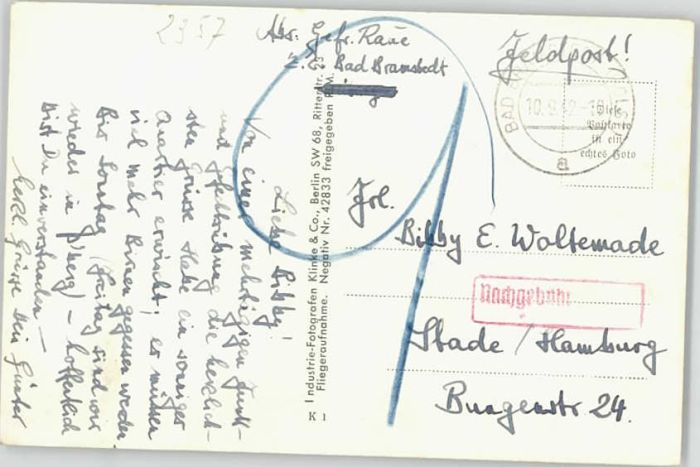 2957
Abs. Gefr. Raue
z. Zt. Bad Bramstedt
Feldpost!
BAD BRAMSTEDT
10.9.42-18
a
Diese
Postkarte
ist ein
echtes Foto
Liebe Bibby!
Von einer mehrtägigen Funk-
und  die herzlich-
sten Grüsse. Habe ein sonniges
Quartier erwischt; es müssen
viel mehr Birnen gegessen werden
Bis Sonntag (Freitag sind wir
wieder in P'berg) - hoffentlich
bist Du einverstanden -
herzl. Grüsse Dein Günter
Industrie-Fotografen Klinke & Co., Berlin SW 68, Ritterstr.
Fliegeraufnahme. Negativ Nr. 42833 freigegeben RLM.
K 1
Frl.
Bibby E. Woltemade
Nachgebühr
Stade / Hamburg
Bungenstr 24.